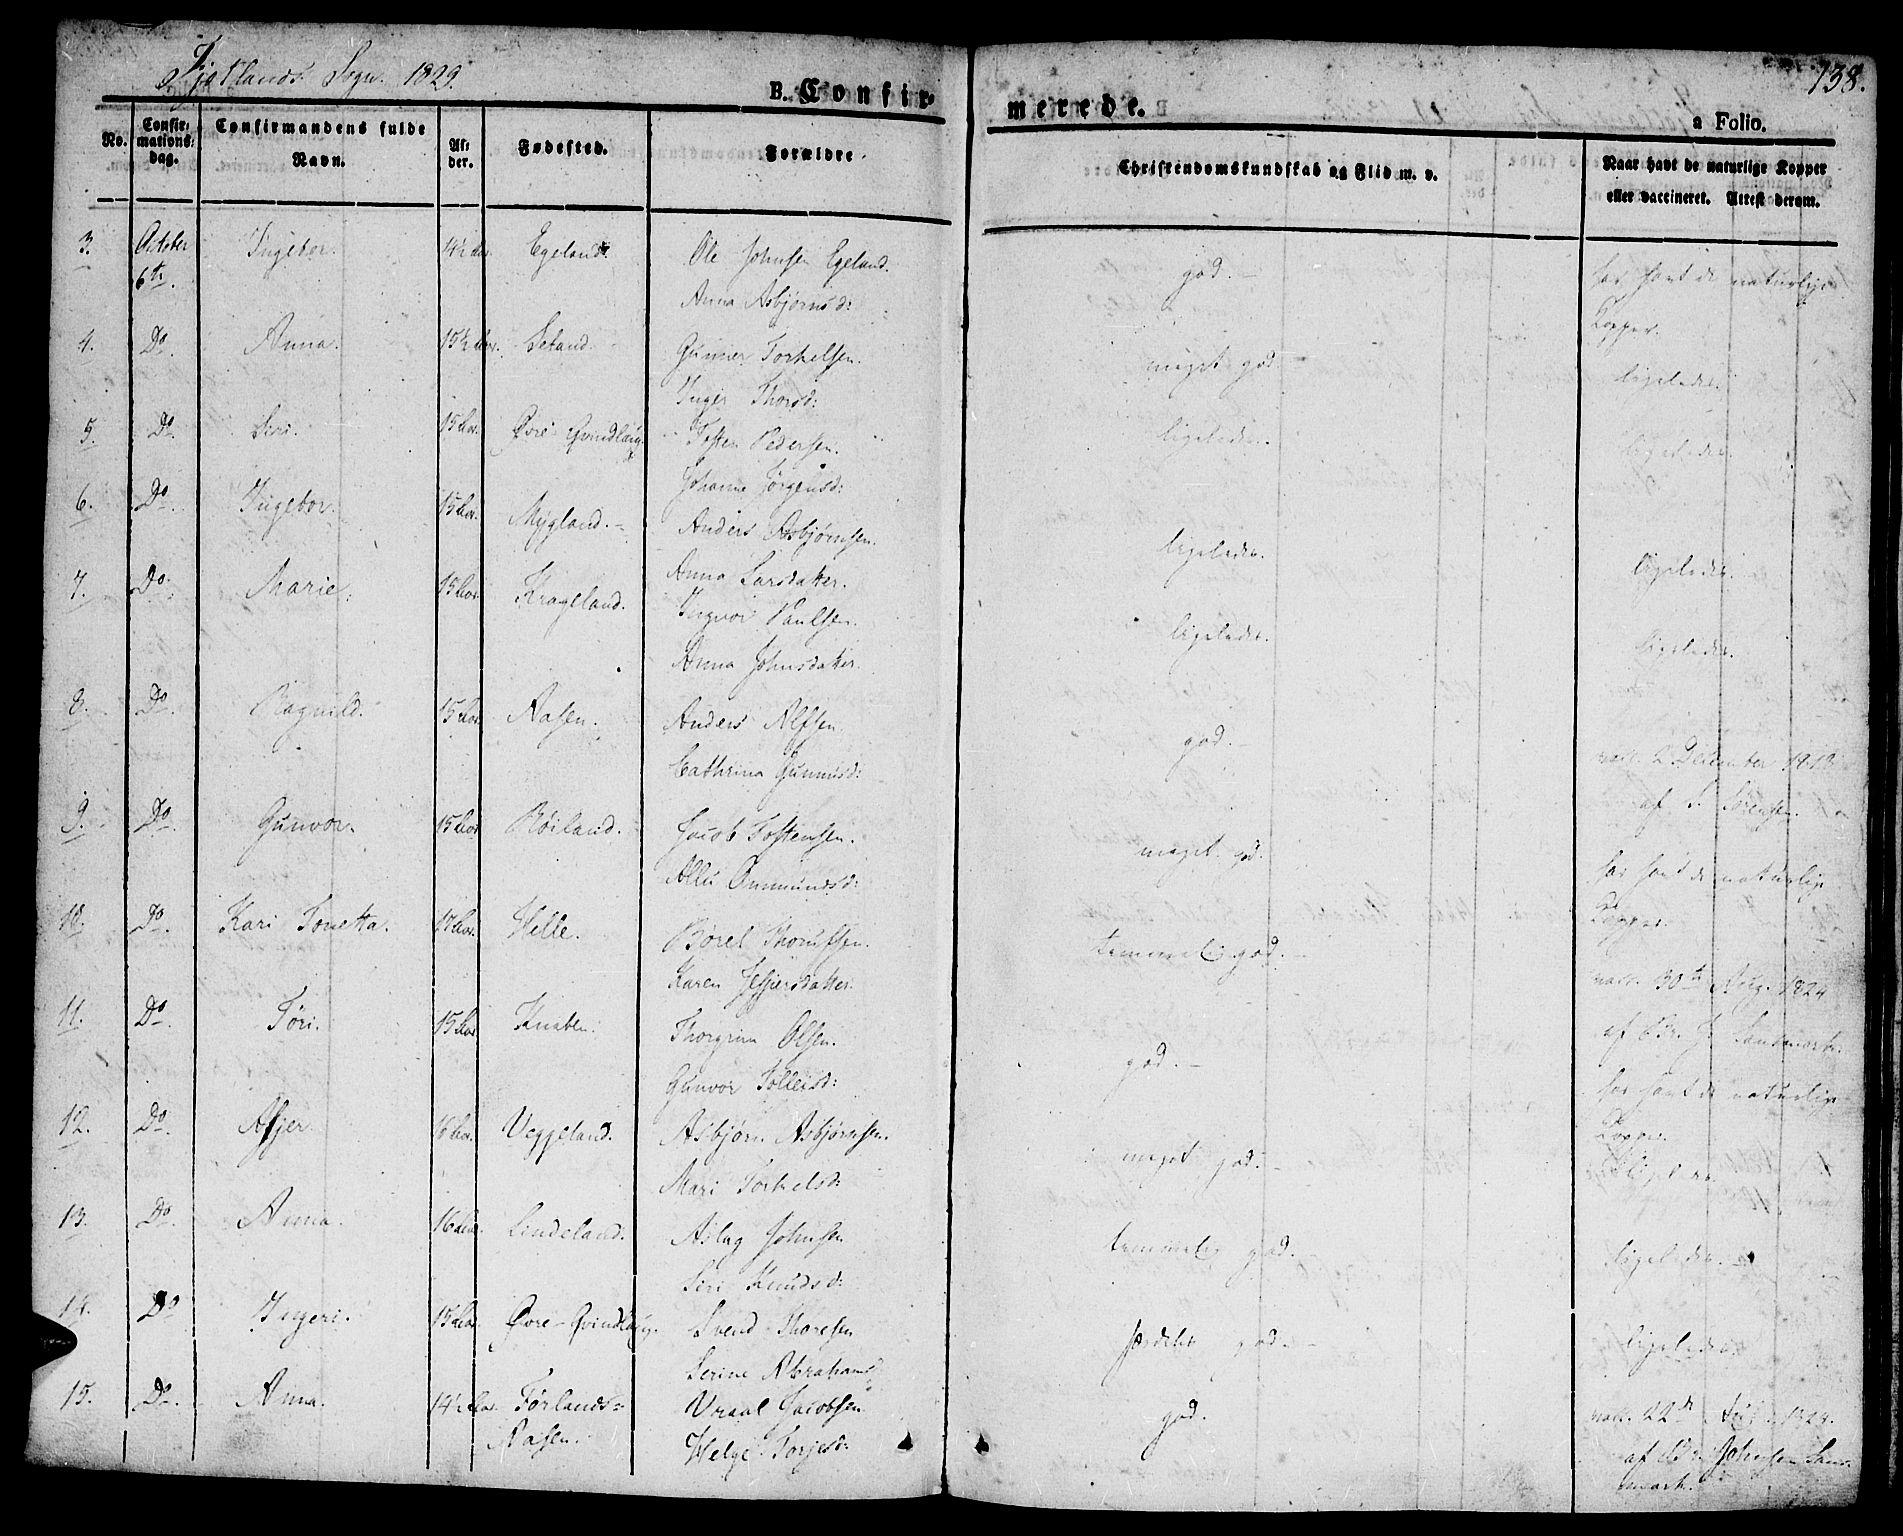 Fjotlands Sogn. 1829.
138.
B. Confir-
merede.
a Folio.
No.
Confir-
mations-
dag.
Confirmandens fulde
Navn.
Al-
der.
Fødested.
Forældre.
Christendomskundskab og Flid m. v.
Naar havt de naturlige Kopper
eller vaccineret. Attest derom.
3. October Ingebor. 14½ Aar. Egeland. Ole Johnsen Egeland. god. har havt de naturlige
6te. Anna Asbjørnsd: Kopper.
4. Do. Anna. 15½ Aar. Gunner Torkelsen. meget god ligeledes.
Inger Thorsd:
5. Do. Siri. 15 Aar. Øvre Qvindlaug. Tosten Pedersen. ligeledes. ligeledes.
Johanne Jørgensd:
6. Do. Ingebor. 15 Aar. Mygland. Anders Asbjørnsen. ligeledes. ligeledes.
Anna Larsdatter.
7. Do. Marie. 15 Aar. Krageland. Ingvor Paulsen. ligeledes. ligeledes.
Anna Johnsdatter.
8. Do. Ragnild. 15 Aar. Aasen. Anders Alfsen. god. vacc. 2 December
Cathrina af S. Sørensen.
9. Do. Gunvor. 15 Aar Røiland. Jacob Tostensen. meget god. har havt de naturlige
Onmundsd: Kopper.
10. Do. Kari Tonetta. 17 Aar. Helle. Børel temmelig god. vacc. 30te Aug. 1824
Karen af Br. J. Sandmark.
11. Do. Tøri. 15 Aar Knaben. Thorgrim Olsen. god. har havt de naturlige
Gunvor Tolleisd: Kopper.
12. Do. 16 Aar. Veggeland. Asbjørn Asbjørnsen. meget god.
Mari Torkelsd:
13. Do. Anna. 16 Aar. Lindeland. Aslag Johnsen temmelig god. ligeledes.
Siri Knudsd:
14. Do Ingeri. 15 Aar. Øvre-Qvindlaug. Svend Thoresen god. ligeledes.
Serine Abrahamsd
15. Do. Anna. 14½ Aar. Førlands= Vraal Jacobsen god. vacc. 22de
Aasen. Helge Torjesd: af Br. Johnsen San-
mark.